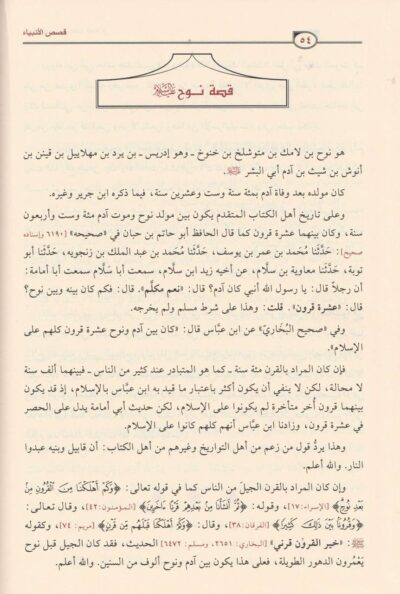 قصص الأنبياء
٥٤
قصة نوح ﵇
هو نوح بن لامك بن متوشلخ بن خنوخ ـ وهو إدريس ـ بن يرد بن مهلاييل بن قينن بن
أنوش بن شيث بن آدم أبي البشر ﵇.
كان مولده بعد وفاة آدم بمئة سنة وست وعشرين سنة، فيما ذكره ابن جرير وغيره.
وعلى تاريخ أهل الكتاب المتقدم يكون بين مولد نوح وموت آدم مئة وست وأربعون
سنة، وكان بينهما عشرة قرون كما قال الحافظ أبو حاتم بن حبان في «صحيحه» [٦١٩٠ وإسناده
صحيح]: حَدَّثنا مُحَمد بن عمر بن يوسف، حَدَّثنا مُحَمد بن عبد الملك بن زنجويه، حَدَّثنا أبو
توبة، حَدَّثنا معاوية بن سلَّام، عن أخيه زيد ابن سلَّام، سمعت أبا سَلَّام سمعت أبا أمامة:
أن رجلاً قال: يا رسول الله أنبي كان آدم؟ قال: «نعم مكلَّم». قال: فكم كان بينه وبين نوح؟
قال: «عشرة قرون». قلت: وهذا على شرط مسلم ولم يخرجه.
وفي «صحيح البُخَاريّ» عن ابن عبَّاس قال: «كان بين آدم ونوح عشرة قرون كلهم على
الإسلام».
فإن كان المراد بالقرن مئة سنة ـ كما هو المتبادر عند كثير من الناس ـ فبينهما ألف سنة
لا محالة، لكن لا ينفي أن يكون أكثر باعتبار ما قيد به ابن عبَّاس بالإسلام، إذ قد يكون
بينهما قرون أُخر متأخرة لم يكونوا على الإسلام، لكن حديث أبي أمامة يدل على الحصر
في عشرة قرون، وزادنا ابن عبَّاس أنهم كلهم كانوا على الإسلام.
وهذا يردُّ قول من زعم من أهل التواريخ وغيرهم من أهل الكتاب: أن قابيل وبنيه عبدوا
النار. والله أعلم.
وإن كان المراد بالقرن الجيلَ من الناس كما في قوله تعالى: ﴿وَكَمْ أَهْلَكْنَا مِنَ الْقُرُونِ مِنْ
بَعْدِ نُوحٍ﴾ [الإسراء: ١٧]، وقوله: ﴿ثُمَّ أَنشَأْنَا مِنْ بَعْدِهِمْ قَرْنًا ءَاخَرِينَ﴾ [المؤمنون: ٤٢]، وقال تعالى:
﴿وَقُرُونًا بَيْنَ ذَلِكَ كَثِيرًا﴾ [الفرقان: ٣٨]، وقال: ﴿وَكَمْ أَهْلَكْنَا قَبْلَهُمْ مِنْ قَرْنٍ﴾ [مريم: ٧٤]، وكقوله
ﷺ: «خير القرون قرني» [البخاري: ٢٦٥١، ومسلم: ٦٤٧٢] الحديث، فقد كان الجيل قبل نوح
يَعْمرون الدهور الطويلة، فعلى هذا يكون بين آدم ونوح ألوف من السنين. والله أعلم.